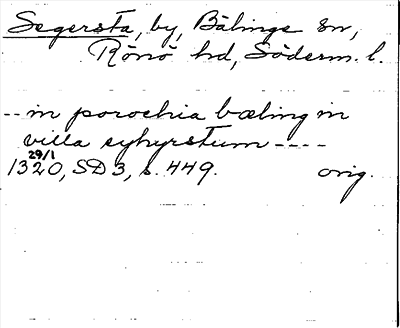 Segersta, by, Bälinge sn,
Rönö hd, Söderm. l.
-- in parochia bæling in
villa syhyrstum ----
29/1
1320, SD 3, s. 449. orig.